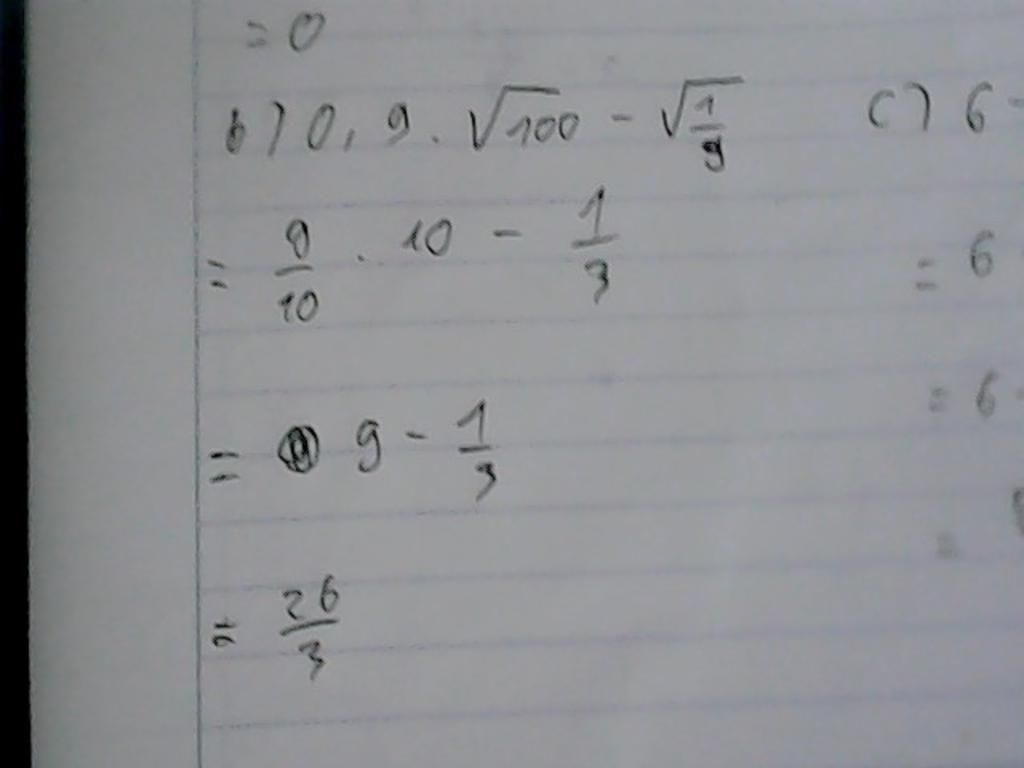 = 0
b) 0,9 . √100 - √1/9
= 9/10 . 10 - 1/3
= 9 - 1/3
= 26/3
c) 6 -
= 6
= 6 -
=